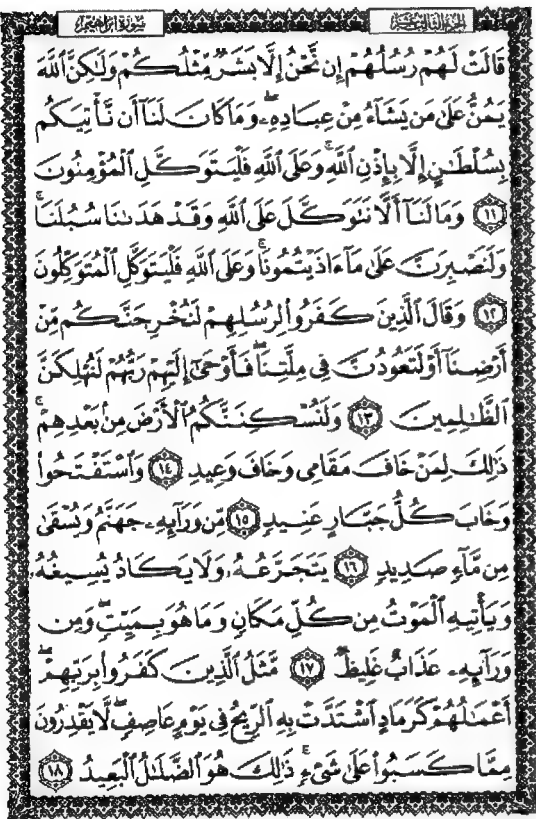 سُورَةُ إِبْرَاهِيم
الجُزْءُ الثَّالِثَ عَشَرَ
قَالَتْ لَهُمْ رُسُلُهُمْ إِن نَّحْنُ إِلَّا بَشَرٌ مِّثْلُكُمْ وَلَٰكِنَّ ٱللَّهَ
يَمُنُّ عَلَىٰ مَن يَشَآءُ مِنْ عِبَادِهِۦۖ وَمَا كَانَ لَنَآ أَن نَّأْتِيَكُم
بِسُلْطَٰنٍ إِلَّا بِإِذْنِ ٱللَّهِۚ وَعَلَى ٱللَّهِ فَلْيَتَوَكَّلِ ٱلْمُؤْمِنُونَ
١١ وَمَا لَنَآ أَلَّا نَتَوَكَّلَ عَلَى ٱللَّهِ وَقَدْ هَدَىٰنَا سُبُلَنَاۚ
وَلَنَصْبِرَنَّ عَلَىٰ مَآ ءَاذَيْتُمُونَاۚ وَعَلَى ٱللَّهِ فَلْيَتَوَكَّلِ ٱلْمُتَوَكِّلُونَ
١٢ وَقَالَ ٱلَّذِينَ كَفَرُوا۟ لِرُسُلِهِمْ لَنُخْرِجَنَّكُم مِّنْ
أَرْضِنَآ أَوْ لَتَعُودُنَّ فِى مِلَّتِنَاۖ فَأَوْحَىٰٓ إِلَيْهِمْ رَبُّهُمْ لَنُهْلِكَنَّ
ٱلظَّٰلِمِينَ ١٣ وَلَنُسْكِنَنَّكُمُ ٱلْأَرْضَ مِنۢ بَعْدِهِمْۚ
ذَٰلِكَ لِمَنْ خَافَ مَقَامِى وَخَافَ وَعِيدِ ١٤ وَٱسْتَفْتَحُوا۟
وَخَابَ كُلُّ جَبَّارٍ عَنِيدٍ ١٥ مِّن وَرَآئِهِۦ جَهَنَّمُ وَيُسْقَىٰ
مِن مَّآءٍ صَدِيدٍ ١٦ يَتَجَرَّعُهُۥ وَلَا يَكَادُ يُسِيغُهُۥ
وَيَأْتِيهِ ٱلْمَوْتُ مِن كُلِّ مَكَانٍ وَمَا هُوَ بِمَيِّتٍۖ وَمِن
وَرَآئِهِۦ عَذَابٌ غَلِيظٌ ١٧ مَّثَلُ ٱلَّذِينَ كَفَرُوا۟ بِرَبِّهِمْۖ
أَعْمَٰلُهُمْ كَرَمَادٍ ٱشْتَدَّتْ بِهِ ٱلرِّيحُ فِى يَوْمٍ عَاصِفٍۖ لَّا يَقْدِرُونَ
مِمَّا كَسَبُوا۟ عَلَىٰ شَىْءٍۚ ذَٰلِكَ هُوَ ٱلضَّلَٰلُ ٱلْبَعِيدُ ١٨